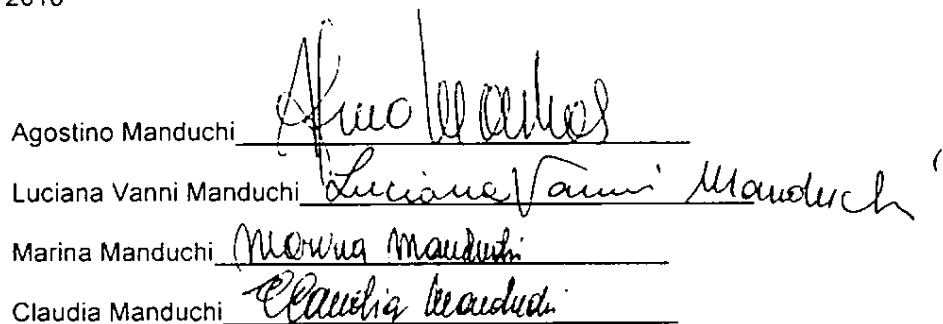 Agostino Manduchi
Luciana Vanni Manduchi Luciana Vanni Manduchi
Marina Manduchi Marina Manduchi
Claudia Manduchi Claudia Manduchi